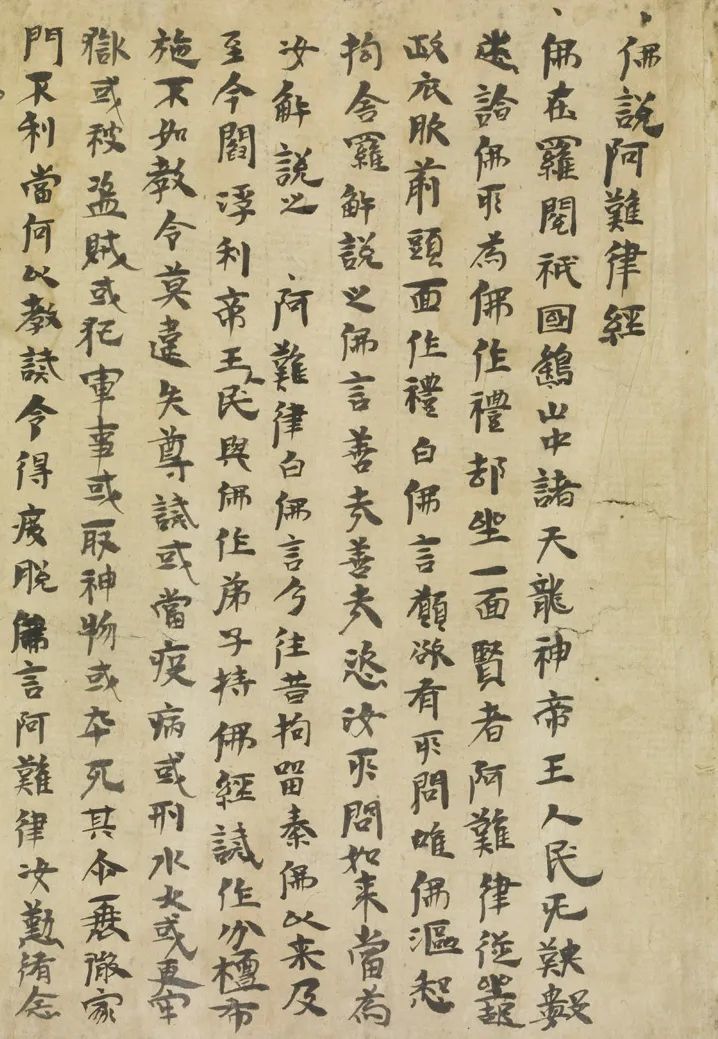 佛說阿難律經
佛在羅閱祇國鷂山中諸天龍神帝王人民无鞅數
悉詣佛所為佛作禮却坐一面賢者阿難律從坐起
政衣服前頭面作禮白佛言願欲有所問唯佛漚恕
拘舍羅解說之佛言善夫善夫恣汝所問如来當為
汝解說之 阿難律白佛言兮往昔拘留秦佛以来及
至今閻浮利帝王人民與佛作弟子持佛經誡作分檀布
施不如教令莫違失尊誡或當疾病或刑水火或更牢
獄或被盜賊或犯軍事或取神物或卒死其命一衰撤家
門不利當何以教誡令得度脫佛言阿難律汝懃猗念